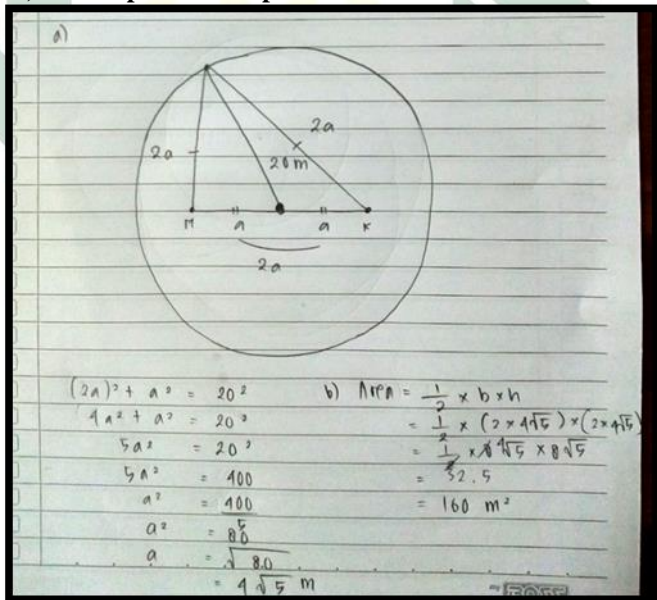 a)
2a
2a
20 m
M
a
a
K
2a
(2a)² + a² = 20²
4a² + a² = 20²
5a² = 20²
5a² = 400
a² = 400
5
a² = 80
a = √80
= 4√5 m
b) Area = 1/2 × b × h
= 1/2 × (2 × 4√5) × (2 × 4√5)
= 1/2 × 8 4√5 × 8√5
= 32.5
= 160 m²